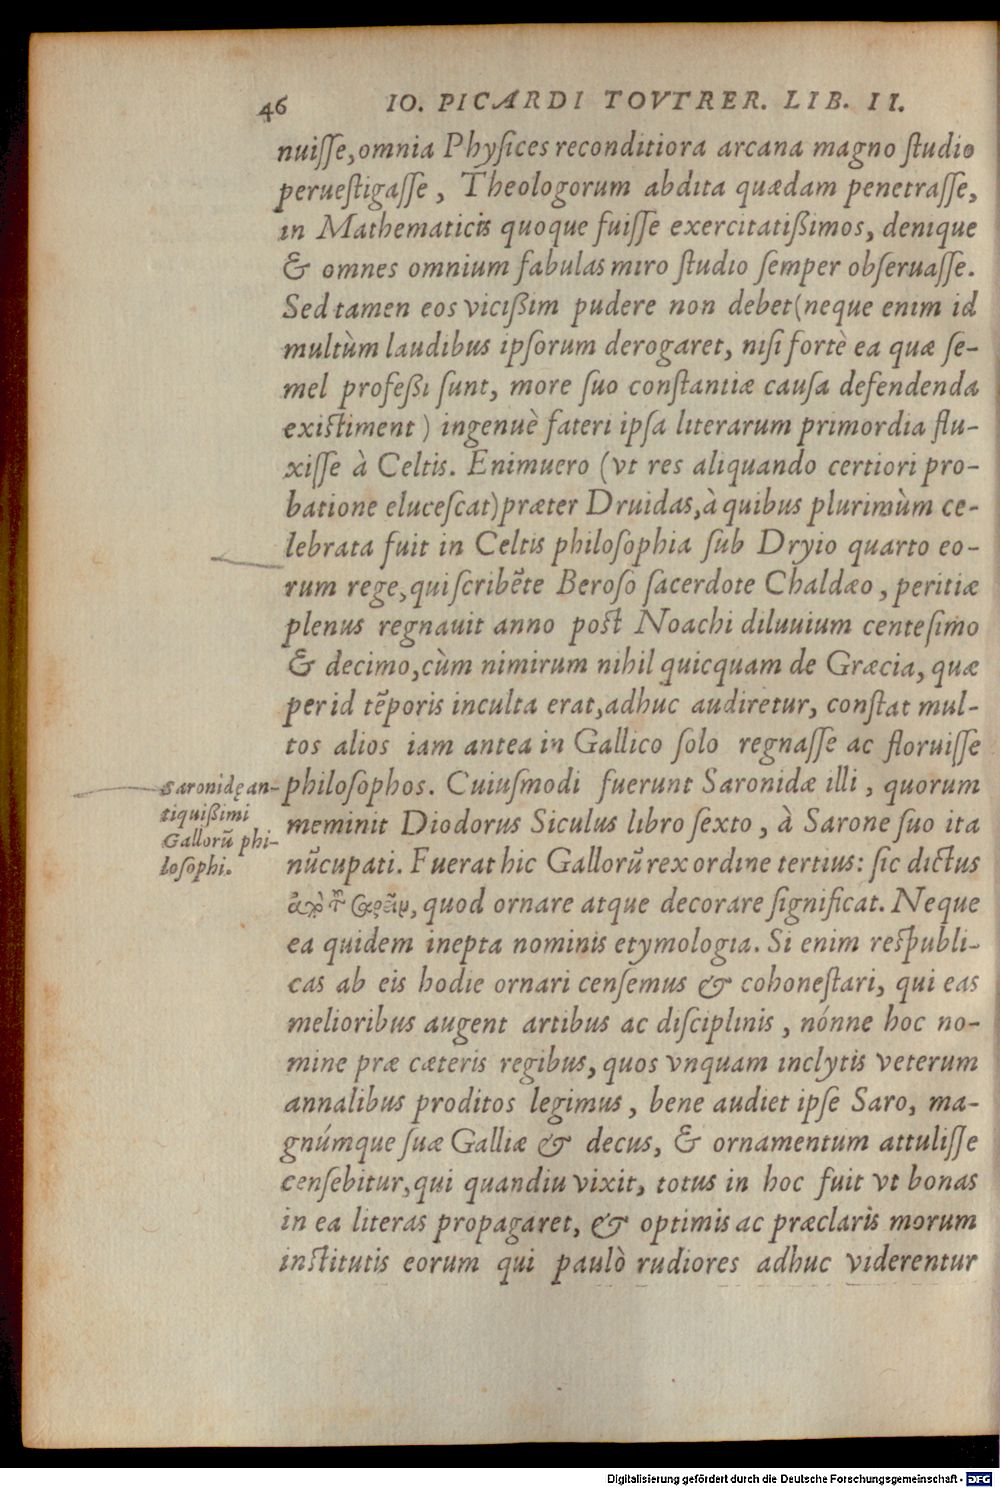 46 IO. PICARDI TOVTRER. LIB. II.
nuiſſe, omnia Phyſices reconditiora arcana magno ſtudio
perueſtigaſſe, Theologorum abdita quædam penetraſſe,
in Mathematicis quoque fuiſſe exercitatißimos, denique
& omnes omnium fabulas miro ſtudio ſemper obſeruaſſe.
Sed tamen eos vicißim pudere non debet (neque enim id
multùm laudibus ipſorum derogaret, niſi fortè ea quæ ſe-
mel profeßi ſunt, more ſuo conſtantiæ cauſa defendenda
exiſtiment) ingenuè fateri ipſa literarum primordia flu-
xiſſe à Celtis. Enimuero (vt res aliquando certiori pro-
batione eluceſcat) præter Druidas, à quibus plurimùm ce-
lebrata fuit in Celtis philoſophia ſub Dryio quarto eo-
rum rege, qui ſcribẽte Beroſo ſacerdote Chaldæo, peritiæ
plenus regnauit anno poſt Noachi diluuium centeſimo
& decimo, cùm nimirum nihil quicquam de Græcia, quæ
per id tẽporis inculta erat, adhuc audiretur, conſtat mul-
tos alios iam antea in Gallico ſolo regnaſſe ac floruiſſe
philoſophos. Cuiuſmodi fuerunt Saronidæ illi, quorum
meminit Diodorus Siculus libro ſexto, à Sarone ſuo ita
nũcupati. Fuerat hic Gallorũ rex ordine tertius: ſic dictus
quod ornare atque decorare ſignificat. Neque
ea quidem inepta nominis etymologia. Si enim reſpubli-
cas ab eis hodie ornari cenſemus & cohoneſtari, qui eas
melioribus augent artibus ac diſciplinis, nónne hoc no-
mine præ cæteris regibus, quos vnquam inclytis veterum
annalibus proditos legimus, bene audiet ipſe Saro, ma-
gnúmque ſuæ Galliæ & decus, & ornamentum attuliſſe
cenſebitur, qui quandiu vixit, totus in hoc fuit vt bonas
in ea literas propagaret, & optimis ac præclaris morum
inſtitutis eorum qui paulò rudiores adhuc viderentur
Saronidę an-
tiquißimi
Gallorũ phi-
loſophi.
Digitalisierung gefördert durch die Deutsche Forschungsgemeinschaft - DFG